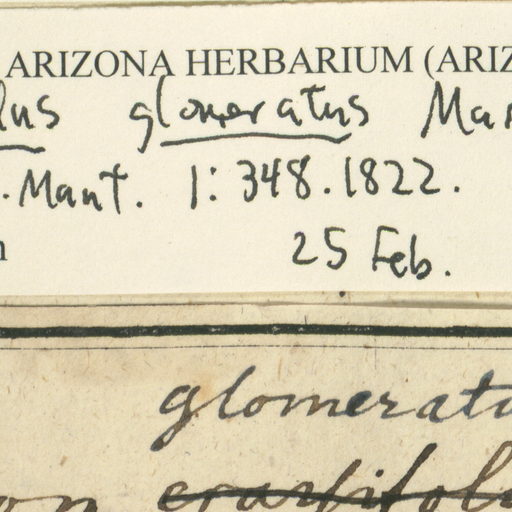 ARIZONA HERBARIUM (ARIZ
lus glomeratus Mar
. Mant. 1: 348. 1822.
n 25 Feb.
glomeratu
on crassifoli